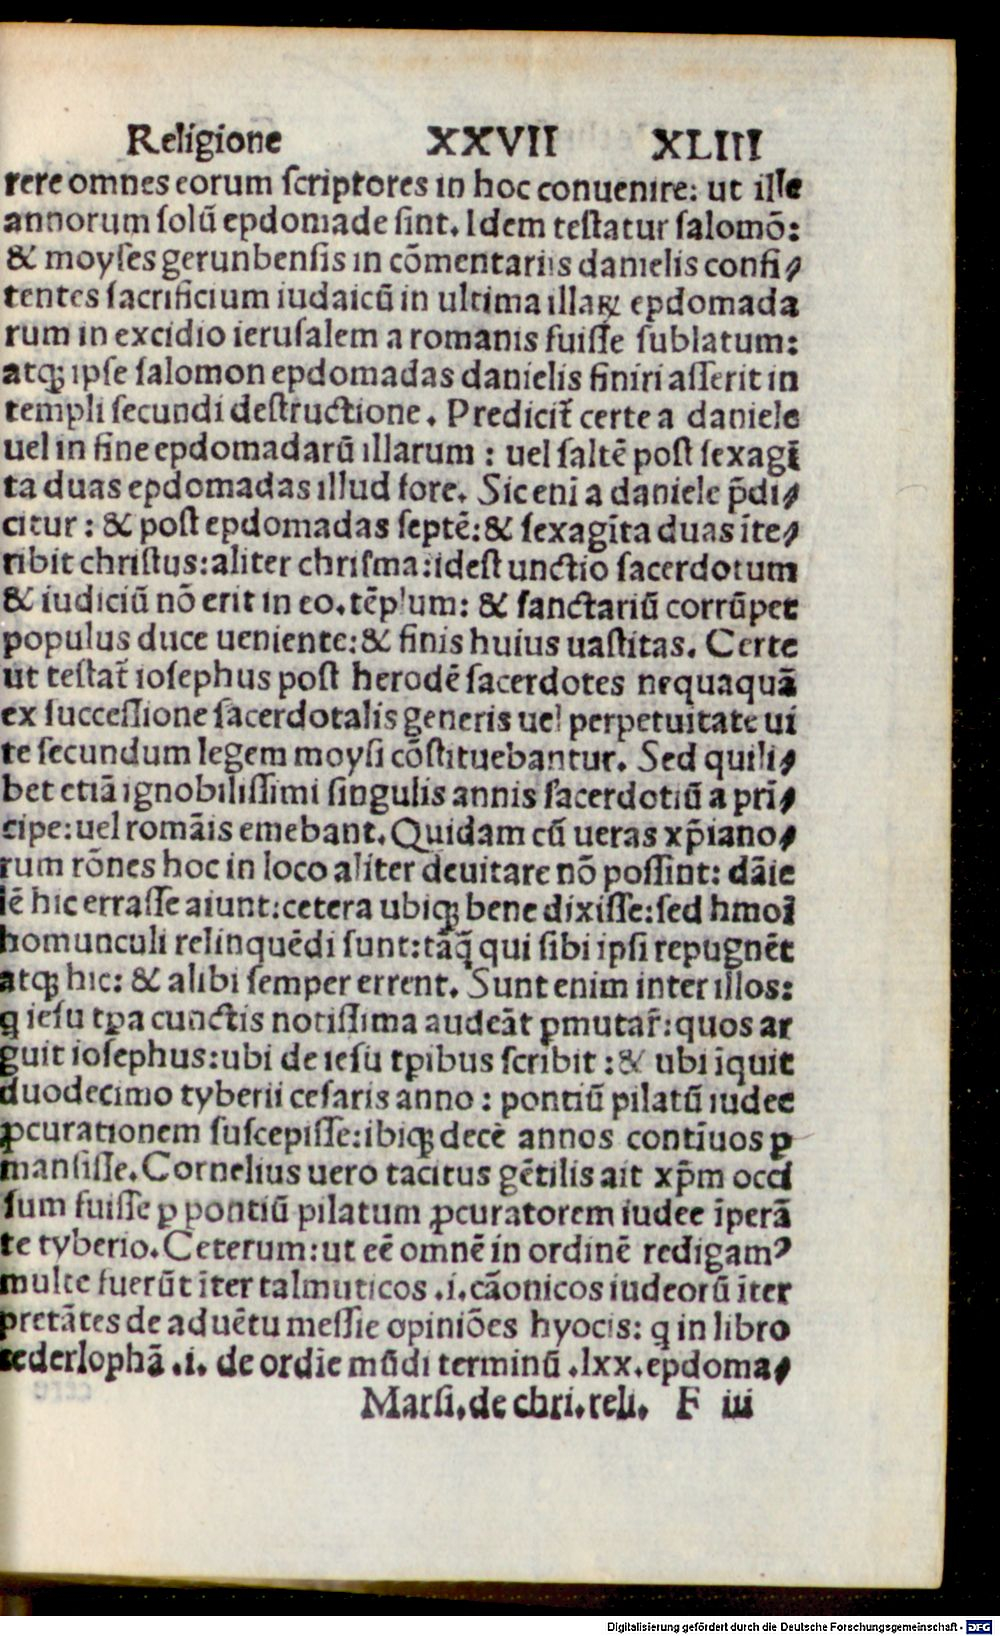 Religione XXVII XLIII
rere omnes eorum ſcriptores in hoc conuenire: ut ille
annorum ſolũ epdomade ſint. Idem teſtatur ſalomõ:
& moyſes gerunbenſis in cõmentariis danielis confi⸗
tentes ſacrificium iudaicũ in ultima illaꝝ epdomada
rum in excidio ieruſalem a romanis fuiſſe ſublatum:
atqꝫ ipſe ſalomon epdomadas danielis finiri aſſerit in
templi ſecundi deſtructione. Predicit̃ certe a daniele
uel in fine epdomadarũ illarum: uel ſaltẽ poſt ſexagĩ
ta duas epdomadas illud fore. Sic eni a daniele p̃di⸗
citur: & poſt epdomadas ſeptẽ: & ſexagĩta duas ĩte⸗
ribit chriſtus: aliter chriſma: ideſt unctio ſacerdotum
& iudiciũ nõ erit in eo. tẽplum: & ſanctariũ corrũpet
populus duce ueniente: & finis huius uaſtitas. Certe
ut teſtat̃ ioſephus poſt herodẽ ſacerdotes nequaquã
ex ſucceſſione ſacerdotalis generis uel perpetuitate ui
te ſecundum legem moyſi cõſtituebantur. Sed quili⸗
bet etiã ignobiliſſimi ſingulis annis ſacerdotiũ a prĩ⸗
cipe: uel romãis emebant. Quidam cũ ueras xp̃iano⸗
rum rõnes hoc in loco aliter deuitare nõ poſſint: dãie
lẽ hic erraſſe aiunt: cetera ubiqꝫ bene dixiſſe: ſed hmoĩ
homunculi relinquẽdi ſunt: tãq̃ qui ſibi ipſi repugnẽt
atqꝫ hic: & alibi ſemper errent. Sunt enim inter illos:
q ieſu tꝑa cunctis notiſſima audeãt ꝑmutar̃: quos ar
guit ioſephus: ubi de ieſu tꝑibus ſcribit: & ubi ĩquit
duodecimo tyberii ceſaris anno: pontiũ pilatũ iudee
ꝓcurationem ſuſcepiſſe: ibiqꝫ decẽ annos contĩuos ꝑ
manſiſſe. Cornelius uero tacitus gẽtilis ait xp̃m occi
ſum fuiſſe ꝑ pontiũ pilatum ꝓcuratorem iudee ĩperã
te tyberio. Ceterum: ut eẽ omnẽ in ordinẽ redigam?
multe fuerũt ĩter talmuticos .i. cãonicos iudeorũ ĩter
pretãtes de aduẽtu meſſie opiniões hyocis: q in libro
cederlophã .i. de ordie mũdi terminũ .lxx. epdoma⸗
Marſi. de chri. reli. F iii
Digitalisierung gefördert durch die Deutsche Forschungsgemeinschaft - DFG